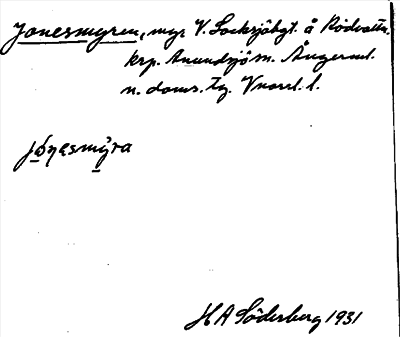 Jonesmyren, myr V. Locksjöbgt. å Rödvattn.
krp. Anundsjö sn. Ångerml.
n. doms. tg. Vnorrl. l.
jo̱nesmy̱ra
H A Söderberg 1931